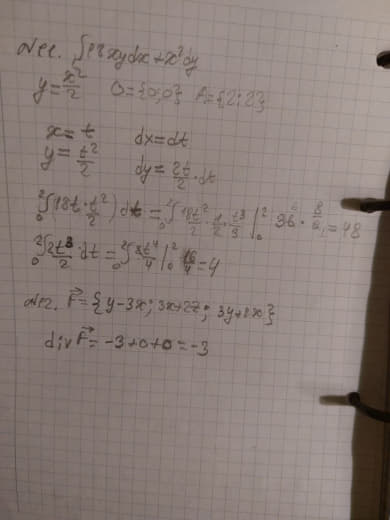 №1. ∫18xydx+x²dy
y=x²/2 O={0;0} A={2;2}
x=t dx=dt
y=t²/2 dy=2t/2·dt
₀²∫(18t·t²/2)dt=₀²∫18t²/2·1/2·t³/3|₀² 36·8/6=48
₀²∫2t³/2·dt=₀²∫2t⁴/4|₀² 16/4=4
№2. F={y-3x; 3x+2z; 3y+8x}
div F=-3+0+0=-3